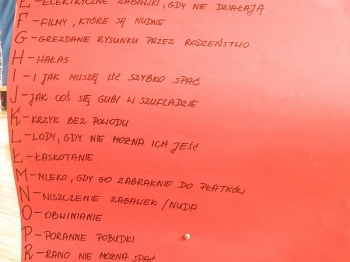 E - ELEKTRYCZNE ZABAWKI, GDY NIE DZIAŁAJĄ
F - FILMY, KTÓRE SĄ NUDNE
G - GREZDANIE RYSUNKU PRZEZ RODZEŃSTWO
H - HAŁAS
I - I JAK MUSZĘ IŚĆ SZYBKO SPAĆ
J - JAK COŚ SIĘ GUBI W SZUFLADZIE
K - KRZYK BEZ POWODU
L - LODY, GDY NIE MOŻNA ICH JEŚĆ
Ł - ŁASKOTANIE
M - MLEKO, GDY GO ZABRAKNIE DO PŁATKÓW
N - NISZCZENIE ZABAWEK / NUDA
O - OBWINIANIE
P - PORANNE POBUDKI
R - RANO NIE MOŻNA SPAĆ